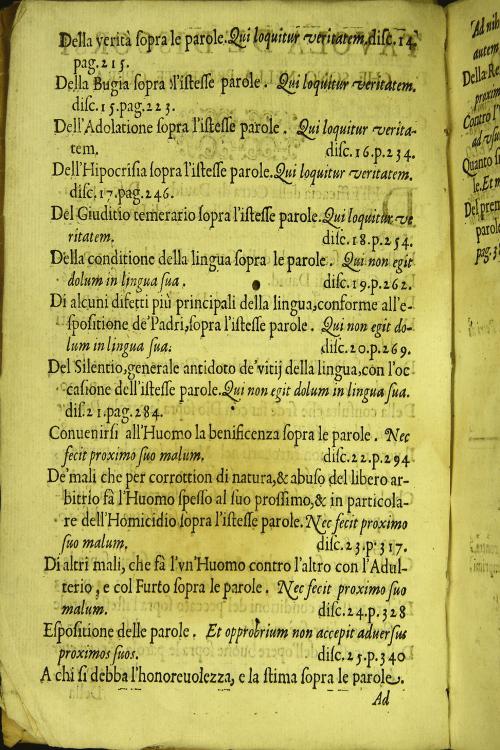 Della verità ſopra le parole. Qui loquitur veritatem. diſc. 14.
pag. 215.
Della Bugia ſopra l'iſteſſe parole. Qui loquitur veritatem.
diſc. 15. pag. 223.
Dell'Adolatione ſopra l'iſteſſe parole. Qui loquitur verita-
tem. diſc. 16. p. 234.
Dell'Hipocriſia ſopra l'iſteſſe parole. Qui loquitur veritatem.
diſc. 17. pag. 246.
Del Giuditio temerario ſopra l'iſteſſe parole. Qui loquitur ve
ritatem. diſc. 18. p. 254.
Della conditione della lingua ſopra le parole. Qui non egit
dolum in lingua ſua. diſc. 19. p. 262.
Di alcuni difetti più principali della lingua, conforme all'e-
ſpoſitione de'Padri, ſopra l'iſteſſe parole. Qui non egit do-
lum in lingua ſua. diſc. 20. p. 269.
Del Silentio, generale antidoto de'vitij della lingua, con l'oc
caſione dell'iſteſſe parole. Qui non egit dolum in lingua ſua.
diſ. 21. pag. 284.
Conuenirſi all'Huomo la benificenza ſopra le parole. Nec
fecit proximo ſuo malum. diſc. 22. p. 294
De'mali che per corrottion di natura, & abuſo del libero ar-
bitrio fà l'Huomo ſpeſſo al ſuo proſſimo, & in particola-
re dell'Homicidio ſopra l'iſteſſe parole. Nec fecit proximo
ſuo malum. diſc. 23. p. 317.
Di altri mali, che fà l'vn'Huomo contro l'altro con l'Adul-
terio, e col Furto ſopra le parole. Nec fecit proximo ſuo
malum. diſc. 24. p. 328
Eſpoſitione delle parole. Et opprobrium non accepit aduerſus
proximos ſuos. diſc. 25. p. 340
A chi ſi debba l'honoreuolezza, e la ſtima ſopra le parole.
Ad
Ad nih
autem
Della Re
proxim
Contro l'
ad vſu
Quanto ſ
le. Et m
Del prem
parole
pag. 3